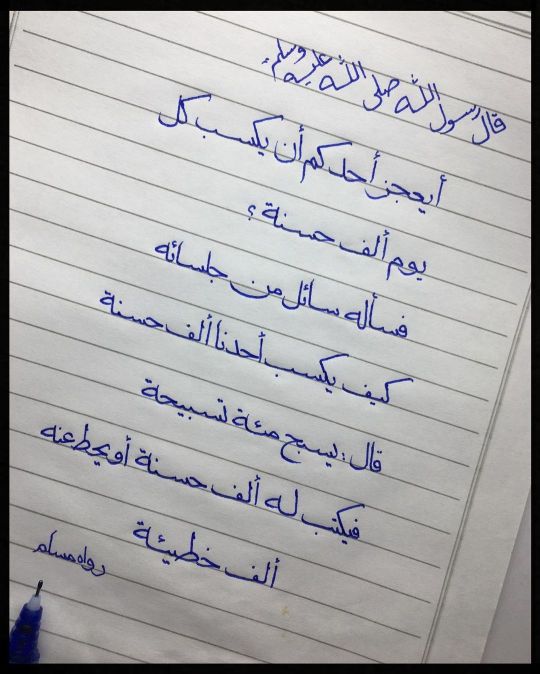 قال رسول الله صلى الله عليه وسلم
أيعجز أحدكم أن يكسب كل
يوم ألف حسنة ؟
فسأله سائل من جلسائه
كيف يكسب أحدنا ألف حسنة
قال: يسبح مئة تسبيحة
فيكتب له ألف حسنة أو يحط عنه
ألف خطيئة
رواه مسلم